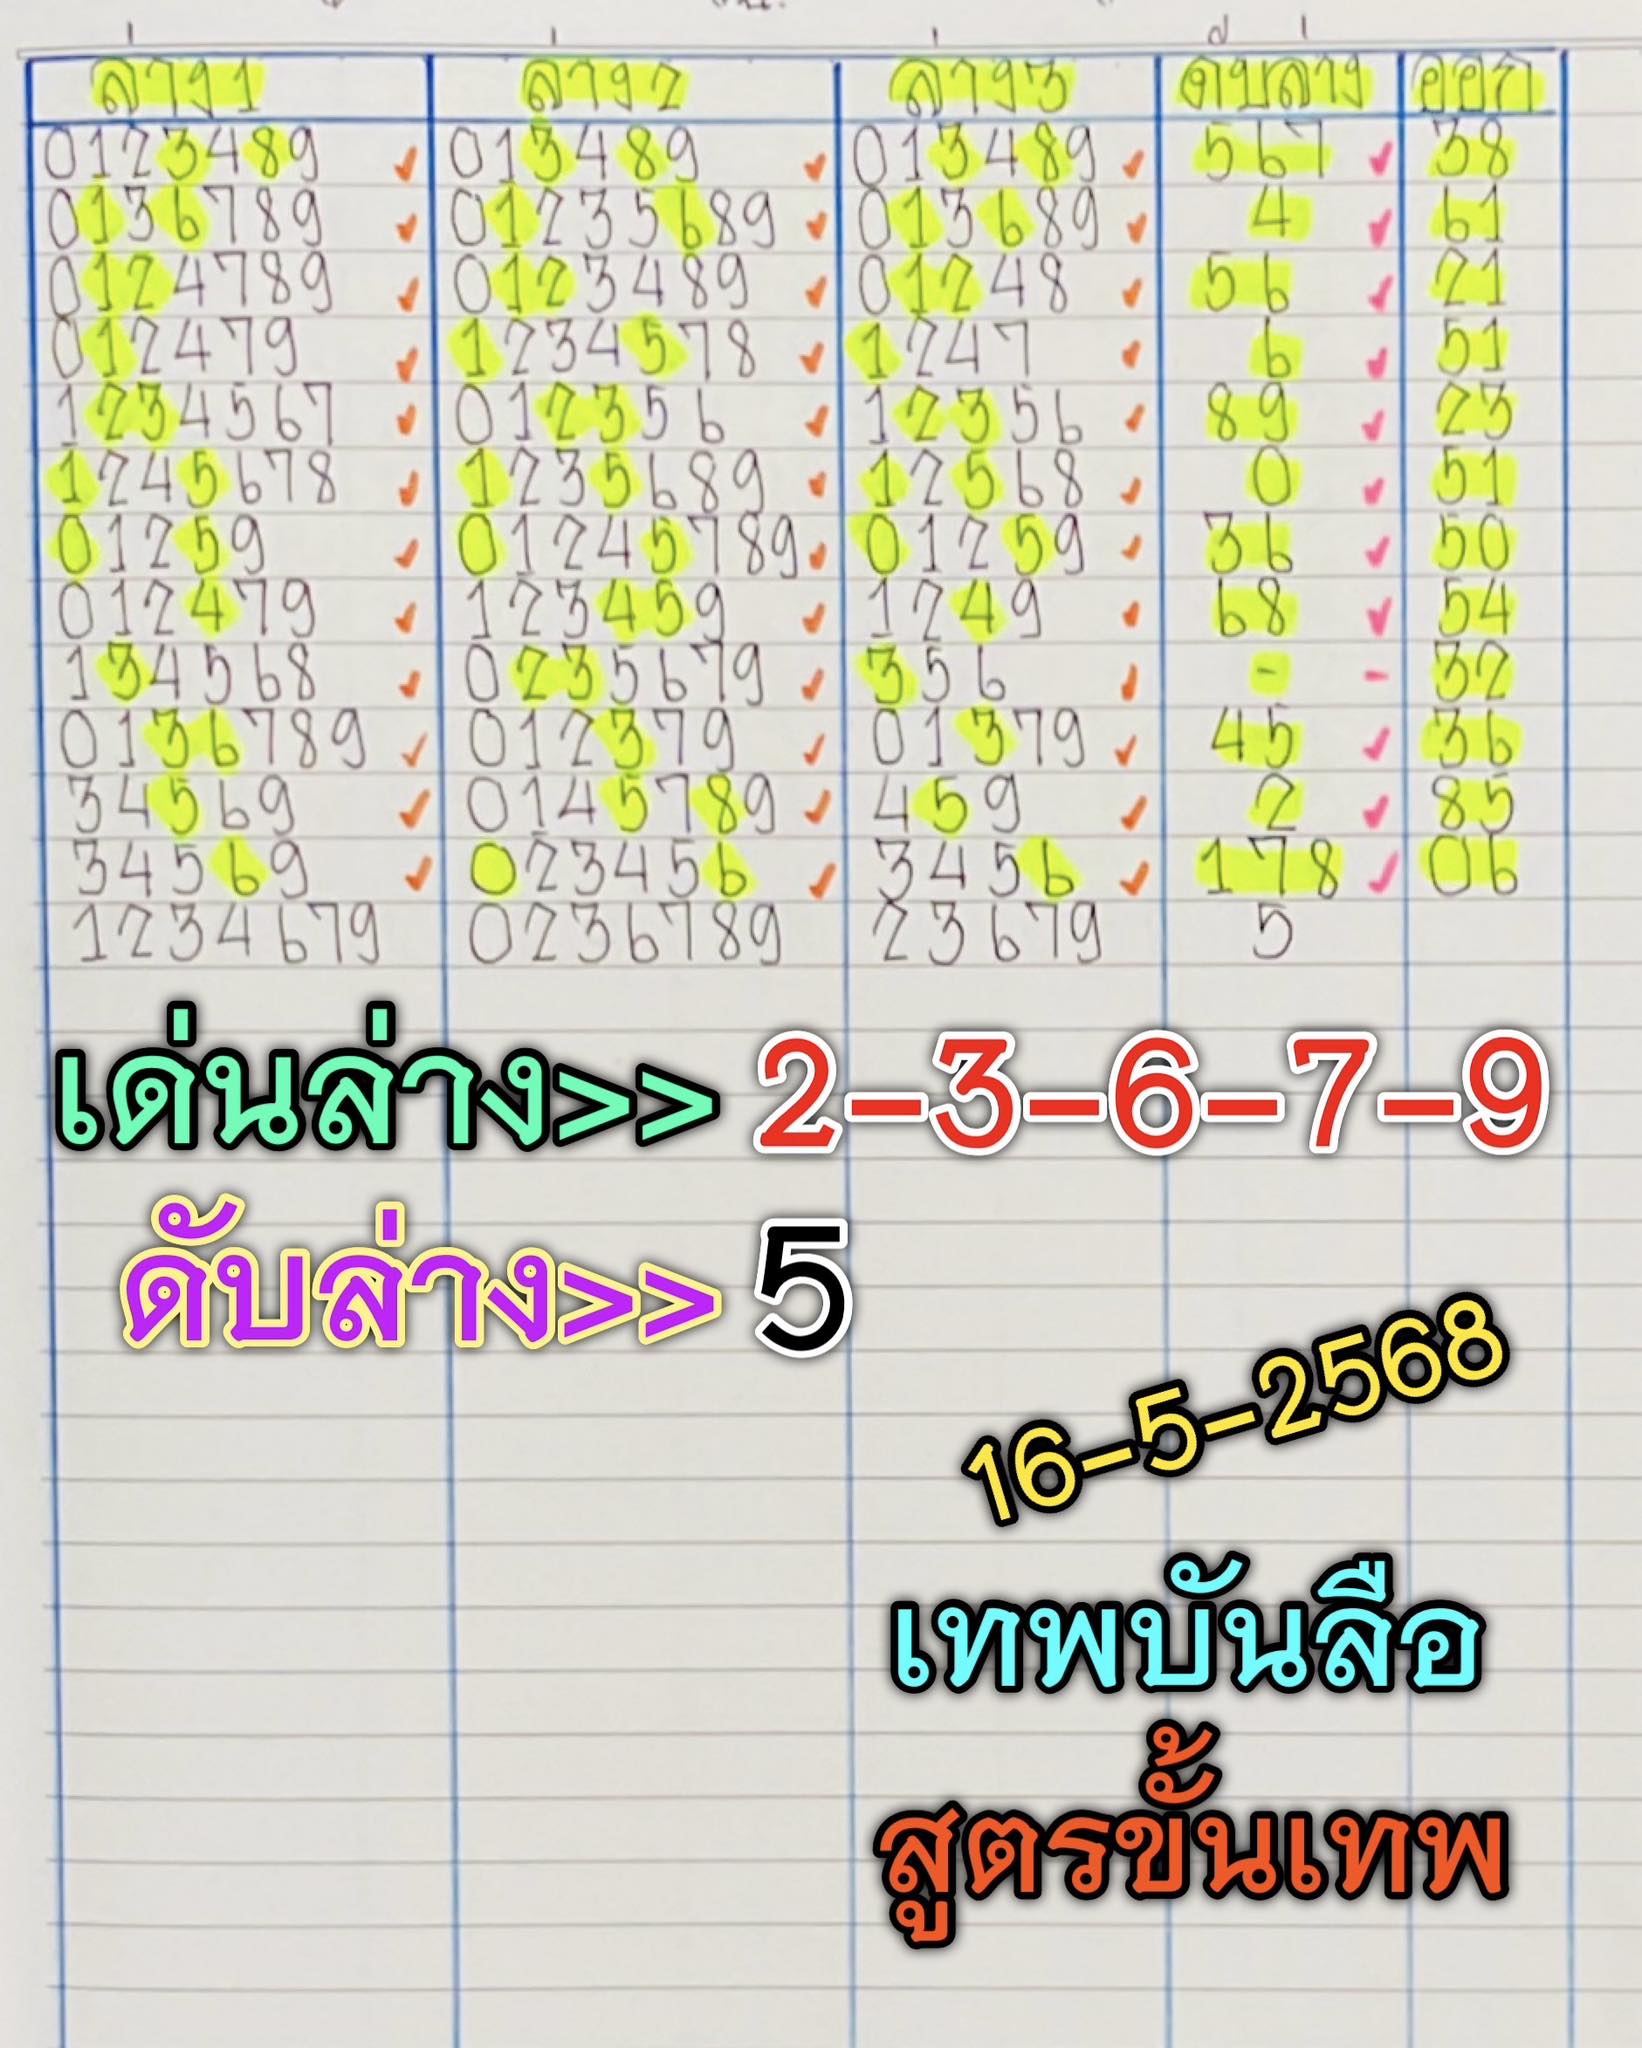 ล่าง1 ล่าง2 ล่าง3 ดับล่าง ออก
0123489 013489 013489 567 38
0136789 01235689 013689 4 61
0124789 0123489 01248 56 21
012479 1234578 1247 6 51
1234567 012356 12356 89 23
1245678 1235689 12568 0 51
01259 01245789 01259 36 50
012479 123459 1249 68 54
134568 0235679 356 - 32
0136789 012379 01379 45 36
34569 0145789 459 2 85
34569 023456 3456 178 06
1234679 0236789 23679 5
เด่นล่าง>> 2-3-6-7-9
ดับล่าง>> 5
16-5-2568
เทพบันลือ
สูตรขั้นเทพ